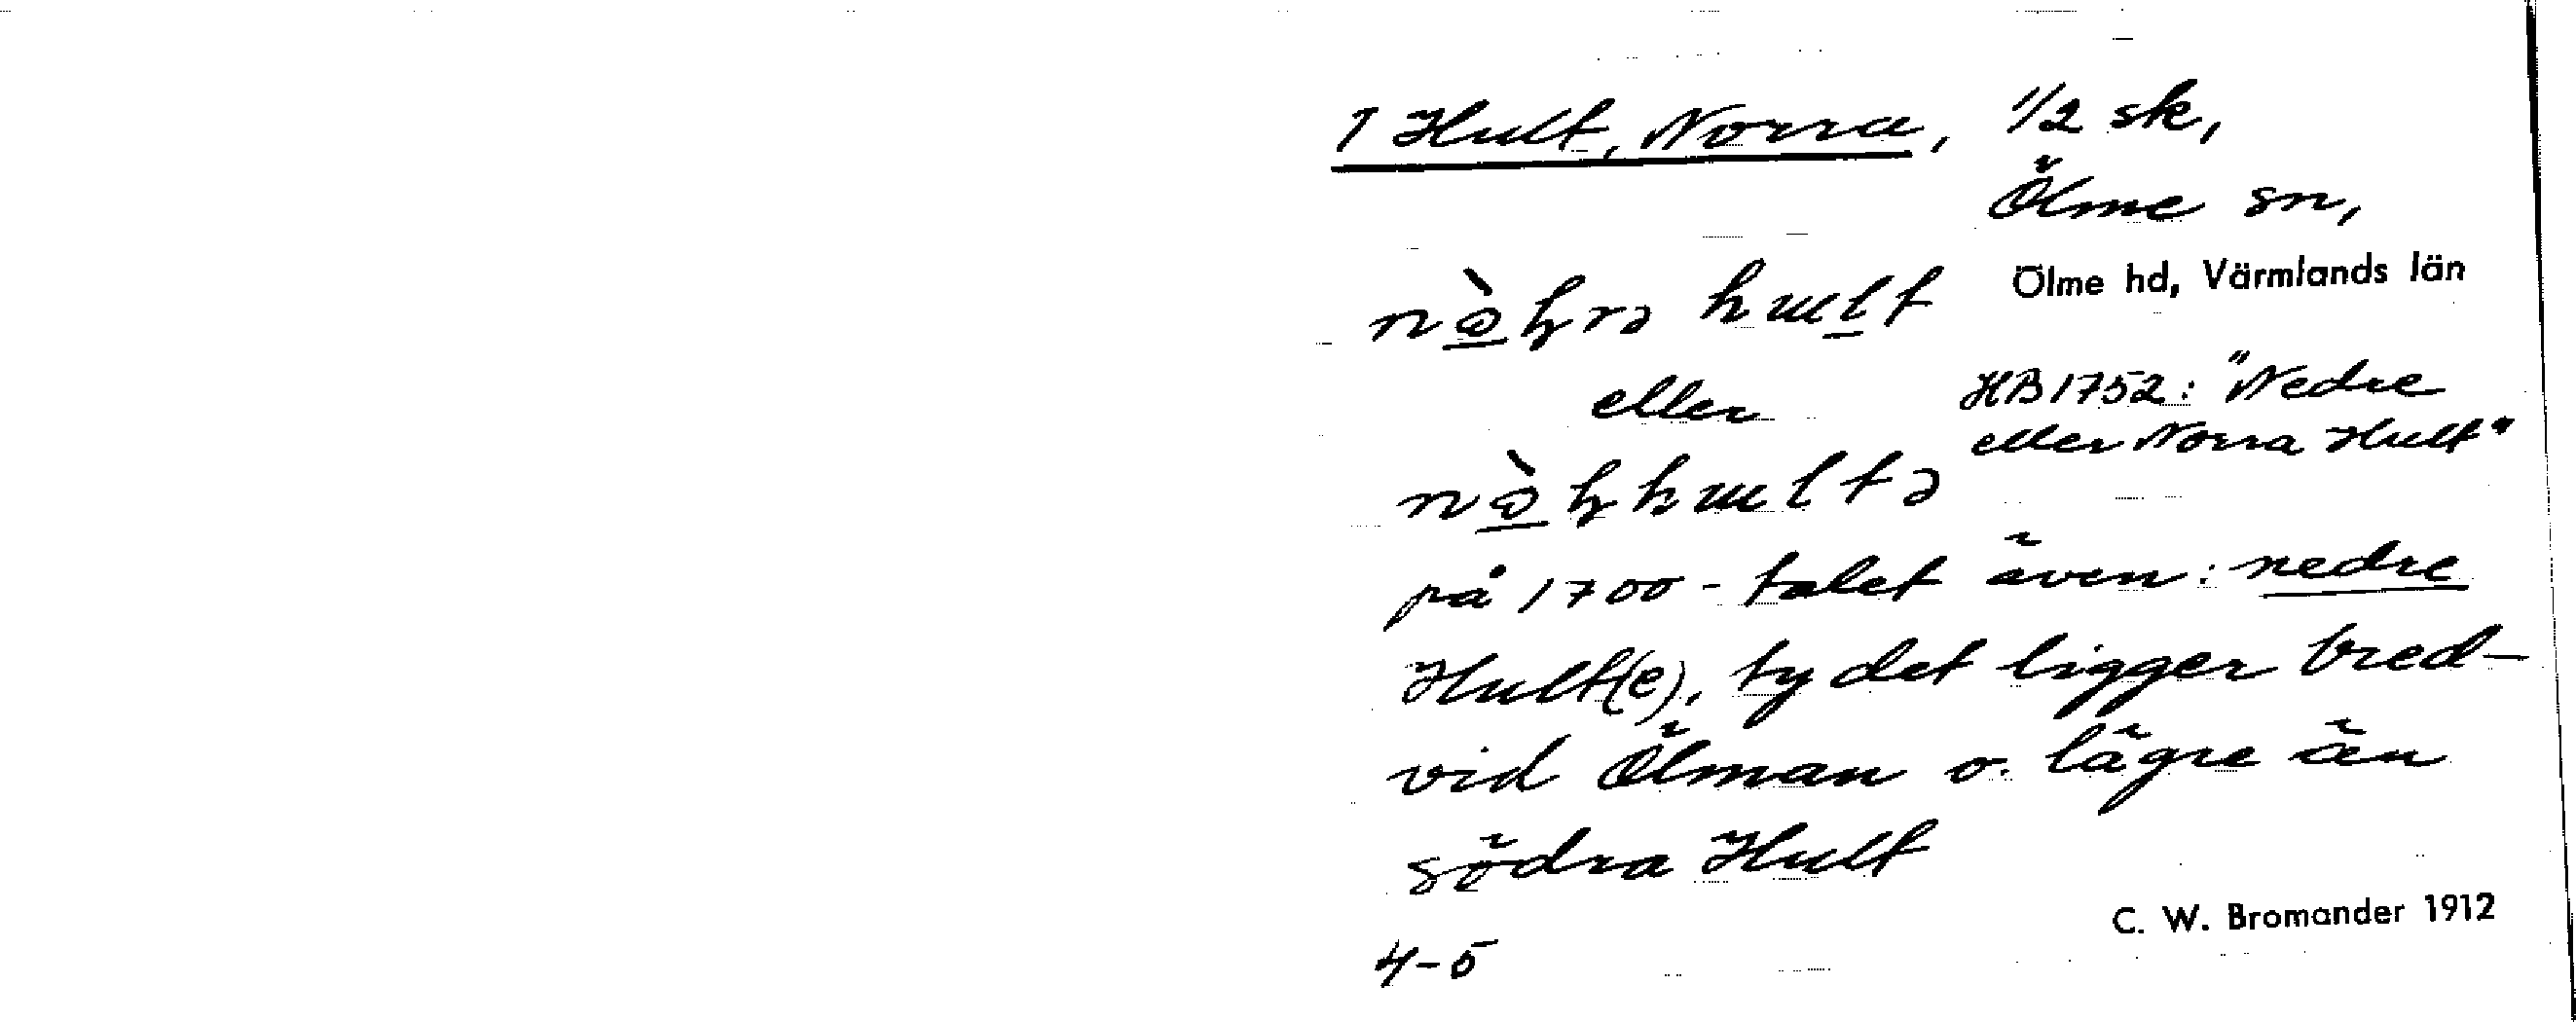 1 Hult, Norra, 1/2 sk,
Ölme sn,
Ölme hd, Värmlands län
eller
HB 1752: "Nedre
eller Norra Hult"
på 1700-talet även: nedre
Hult(e), ty det ligger bred-
vid Ölman o. lägre än
södra Hult
C. W. Bromander 1912
4-5